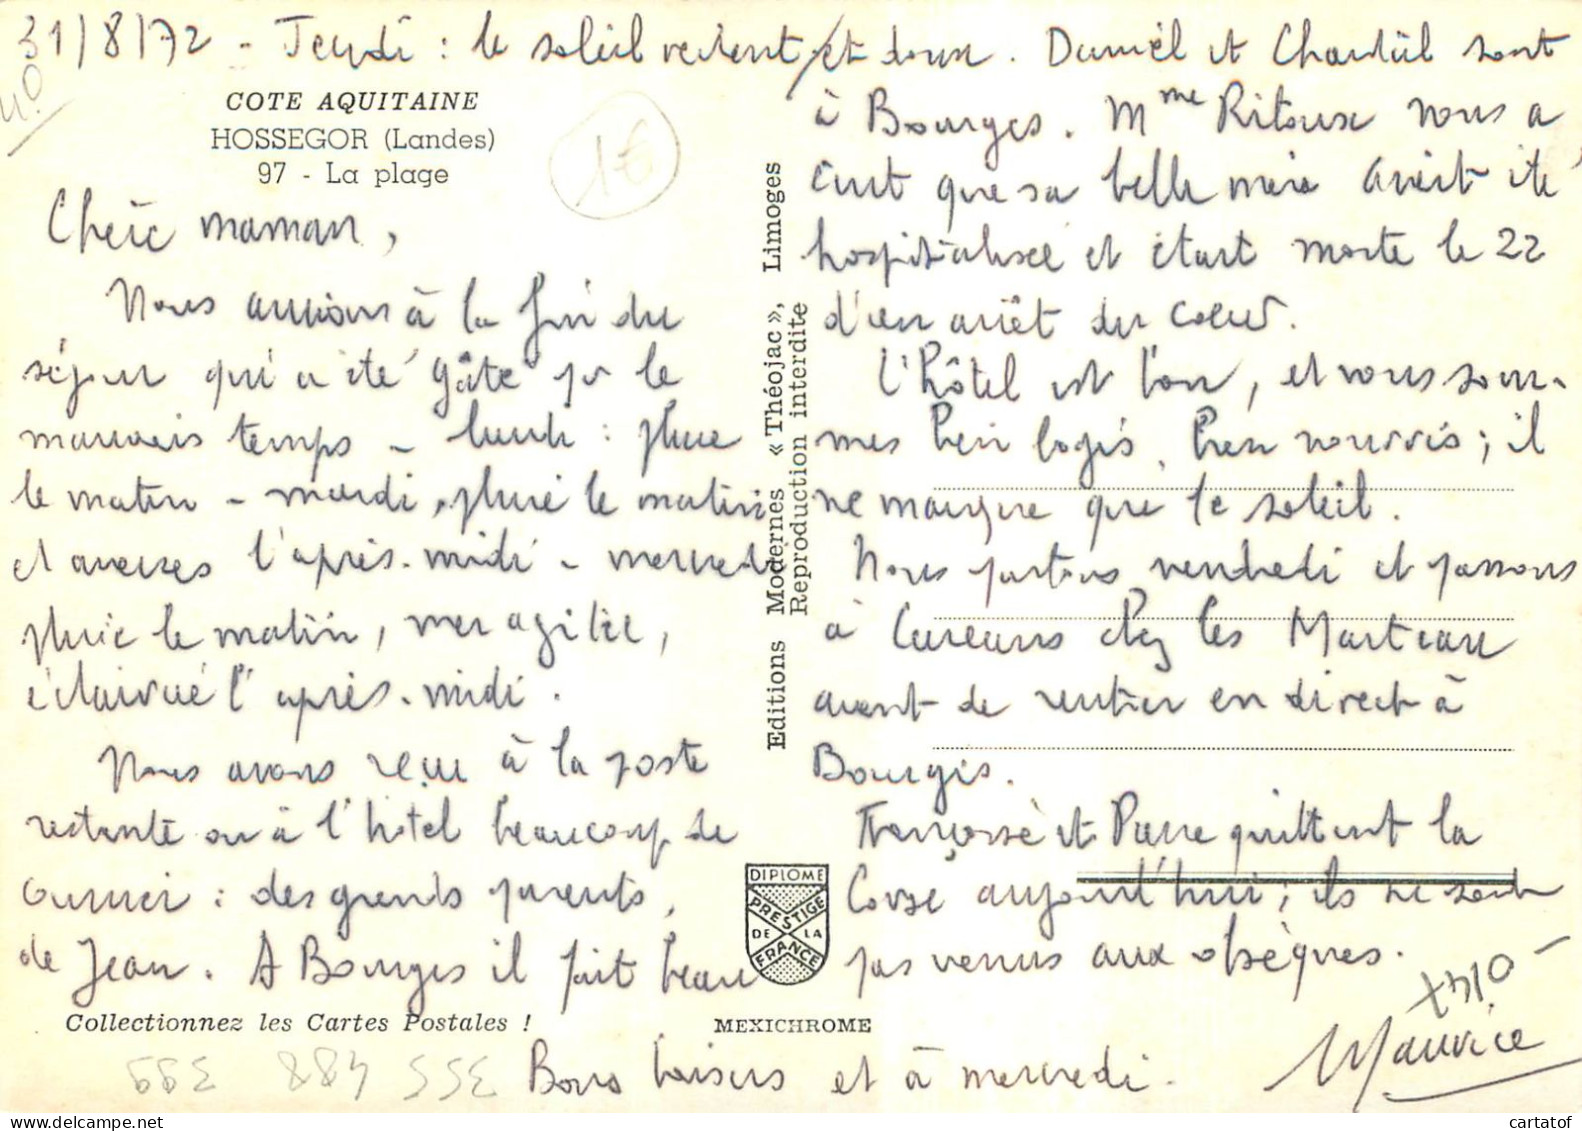 31/8/72 - Jeudi : le soleil revient et doux.
COTE AQUITAINE
HOSSEGOR (Landes)
97 - La plage
1€
Chère maman,
Nous arrivons à la fin du
séjour qui a été gâté par le
mauvais temps - lundi : pluie
le matin - mardi, pluie le matin
et averses l'après-midi - mercredi
pluie le matin, mer agitée,
éclaircie l'après-midi.
Nous avons reçu à la poste
restante ou à l'hôtel beaucoup de
courrier : des grands parents,
de Jean. A Bourges il fait beau
Collectionnez les Cartes Postales !
Editions Modernes « Théojac », Limoges
Reproduction interdite
DIPLOME
PRESTIGE
DE LA
FRANCE
MEXICHROME
Daniel et Chantal sont
à Bourges. Mme Ritoux nous a
écrit que sa belle mère avait été
hospitalisée et était morte le 22
d'un arrêt du coeur.
L'hôtel est bon, et nous som-
mes bien logés, bien nourris ; il
ne manque que le soleil.
Nous partons vendredi et passons
à chez les Marteau
avant de rentrer en direct à
Bourges.
Françoise et Pierre quittent la
Corse aujourd'hui ; ils ne sont
pas venus aux obsèques.
Bons baisers et à mercredi.
Maurice
cartatof